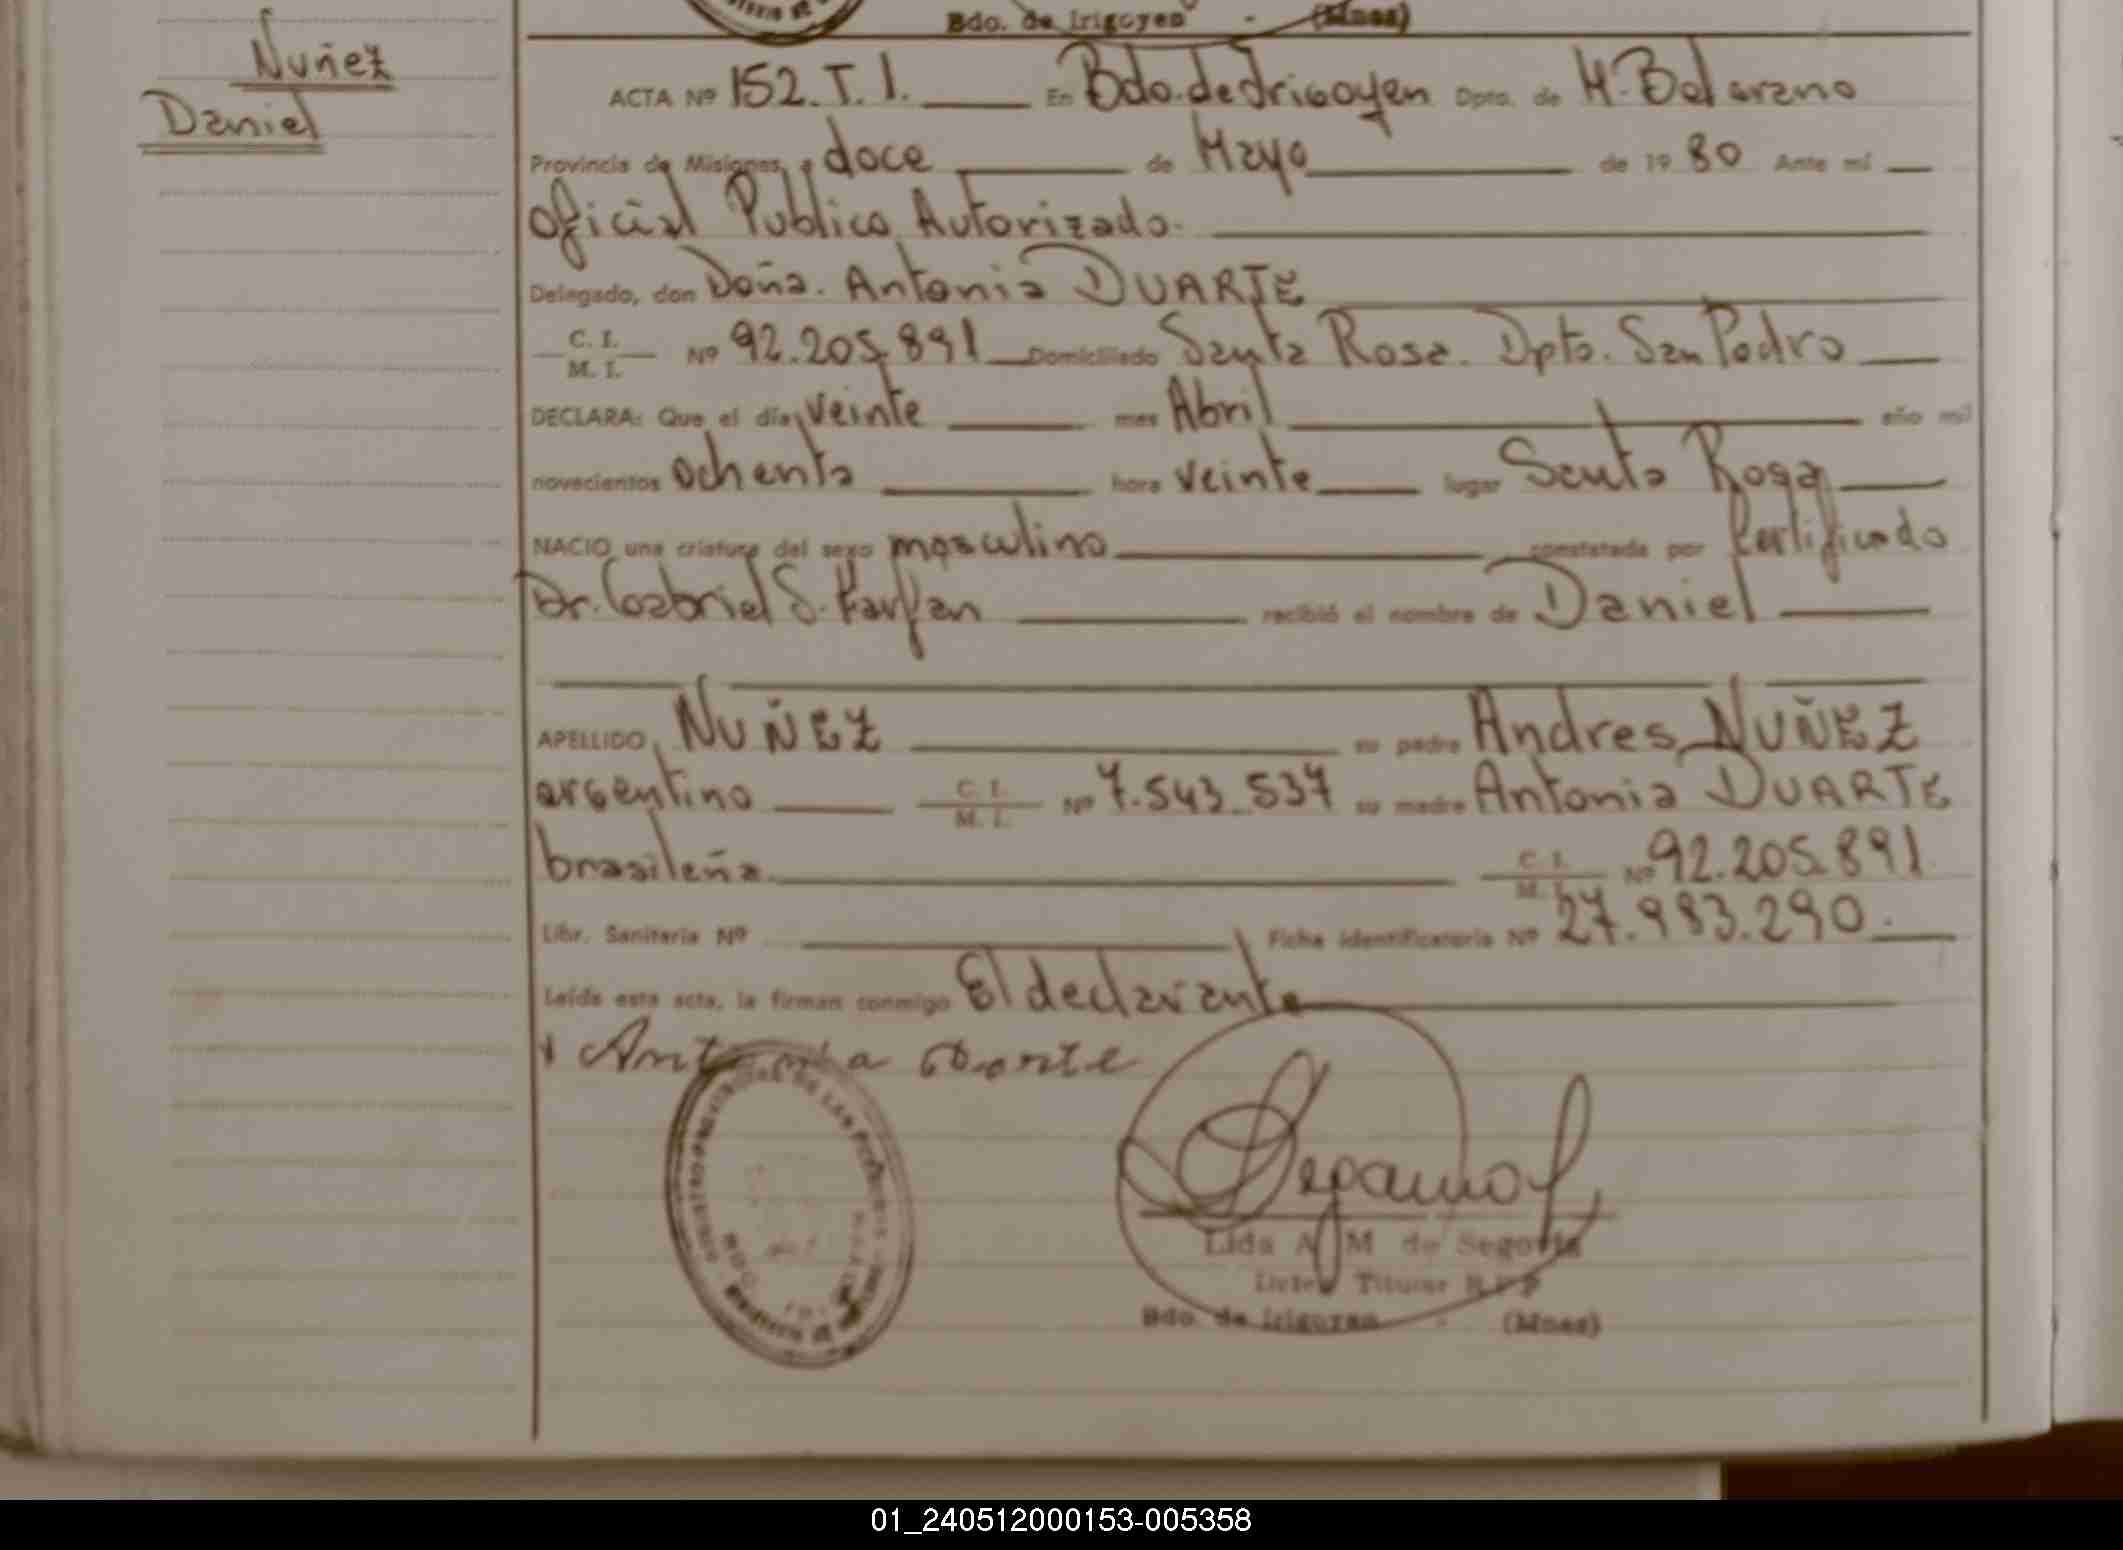 Bdo. de Irigoyen - (Mnes)
Nuñez
Daniel
ACTA Nº 152. T. 1. En Bdo. de Irigoyen Dpto. de M. Belgrano
Provincia de Misiones, a doce de Mayo de 1980 Ante mí
Oficial Publico Autorizado.
Delegado, don Doña. Antonia DUARTE
C. I. M. I. Nº 92.205.891 Domiciliado Santa Rosa. Dpto. San Pedro
DECLARA: Que el día veinte mes Abril año mil
novecientos ochenta hora veinte lugar Santa Rosa
NACIO una criatura del sexo masculino constatada por Certificado
Dr. Gabriel S. Farfan recibió el nombre de Daniel
APELLIDO NUÑEZ su padre Andres NUÑEZ
argentino C. I. M. I. Nº 7.543.537 su madre Antonia DUARTE
brasileña C. I. M. I. Nº 92.205.891
Libr. Sanitaria Nº Ficha identificatoria Nº 27.983.290.
Leída esta acta, la firman conmigo El declarante
Antonia Duarte
Lida A M de Segovia
Titular
Bdo. de Irigoyen - (Mnes)
01_240512000153-005358